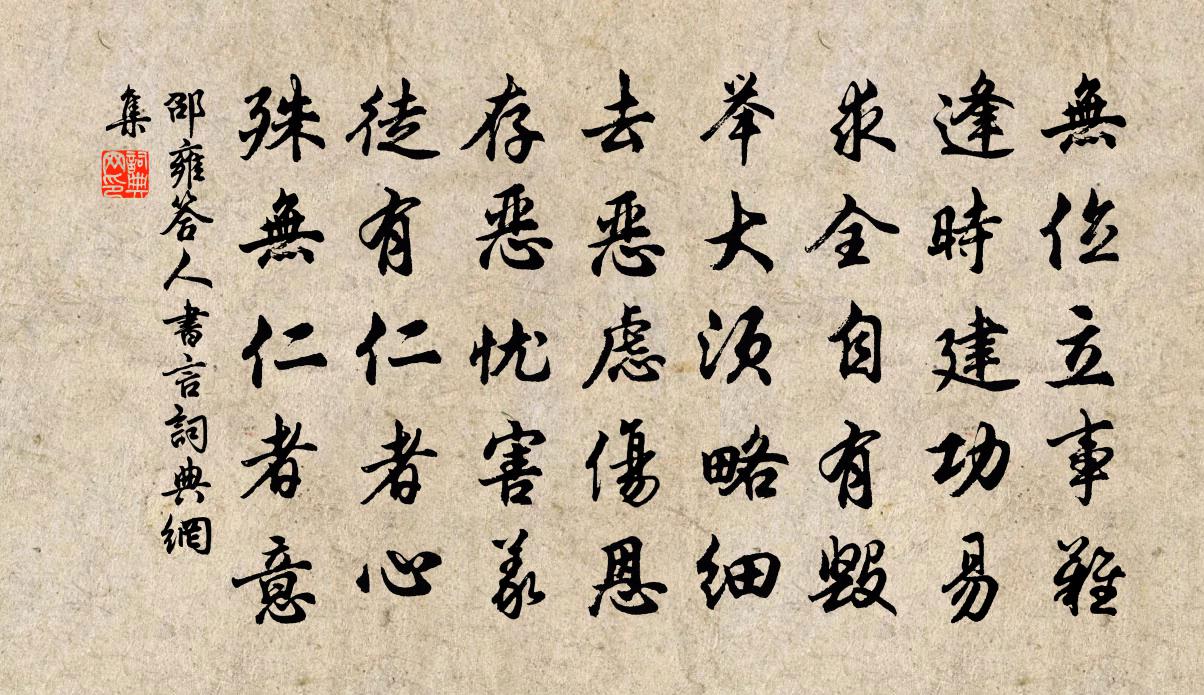 無位立事難
逢時建功易
求全自有毀
举大須略細
去惡慮傷恩
存惡忧害義
徒有仁者心
殊無仁者意
邵雍答人書言詞典網
集
詞典
网印